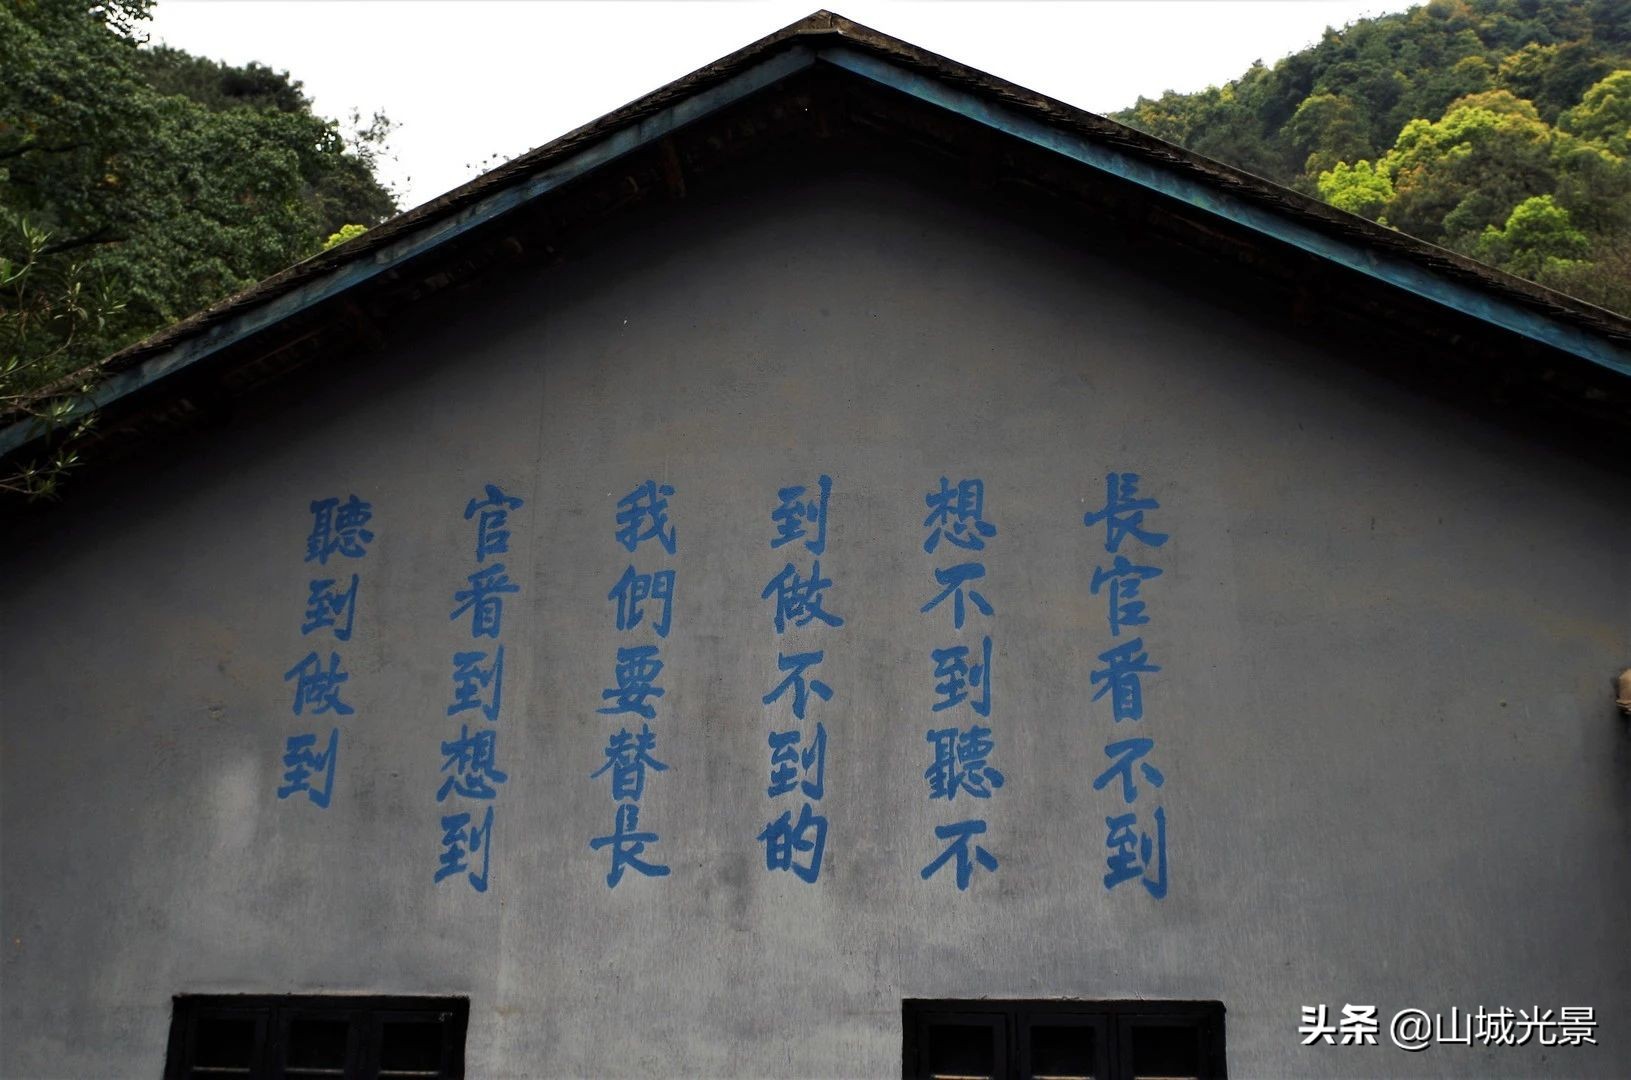 長官看不到
想不到聽不
到做不到的
我們要替長
官看到想到
聽到做到
头条 @山城光景